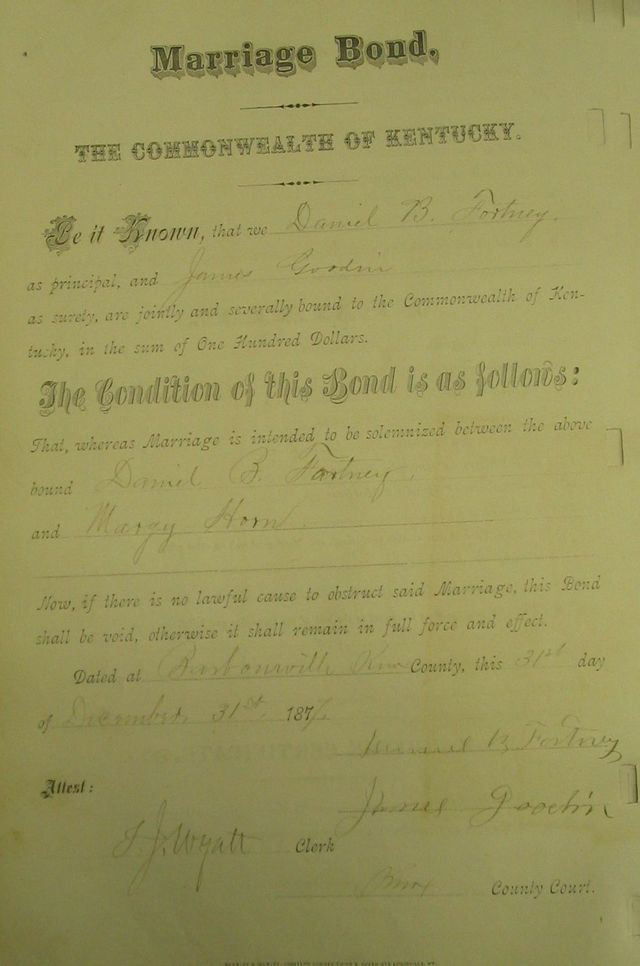 Marriage Bond.
THE COMMONWEALTH OF KENTUCKY.
Be it Known, that we Daniel B. Fortney.
as principal, and James Goodin
as surety, are jointly and severally bound to the Commonwealth of Ken-
tucky, in the sum of One Hundred Dollars.
The Condition of this Bond is as follows:
That, whereas Marriage is intended to be solemnized between the above
bound Daniel B. Fortney.
and Margy Horn.
Now, if there is no lawful cause to obstruct said Marriage, this Bond
shall be void, otherwise it shall remain in full force and effect.
Dated at Barbourville Knox County, this 31st day
of December 31st. 187
Daniel B Fortney
Attest:
James Goodin
J. Wyatt Clerk
Knox County Court.